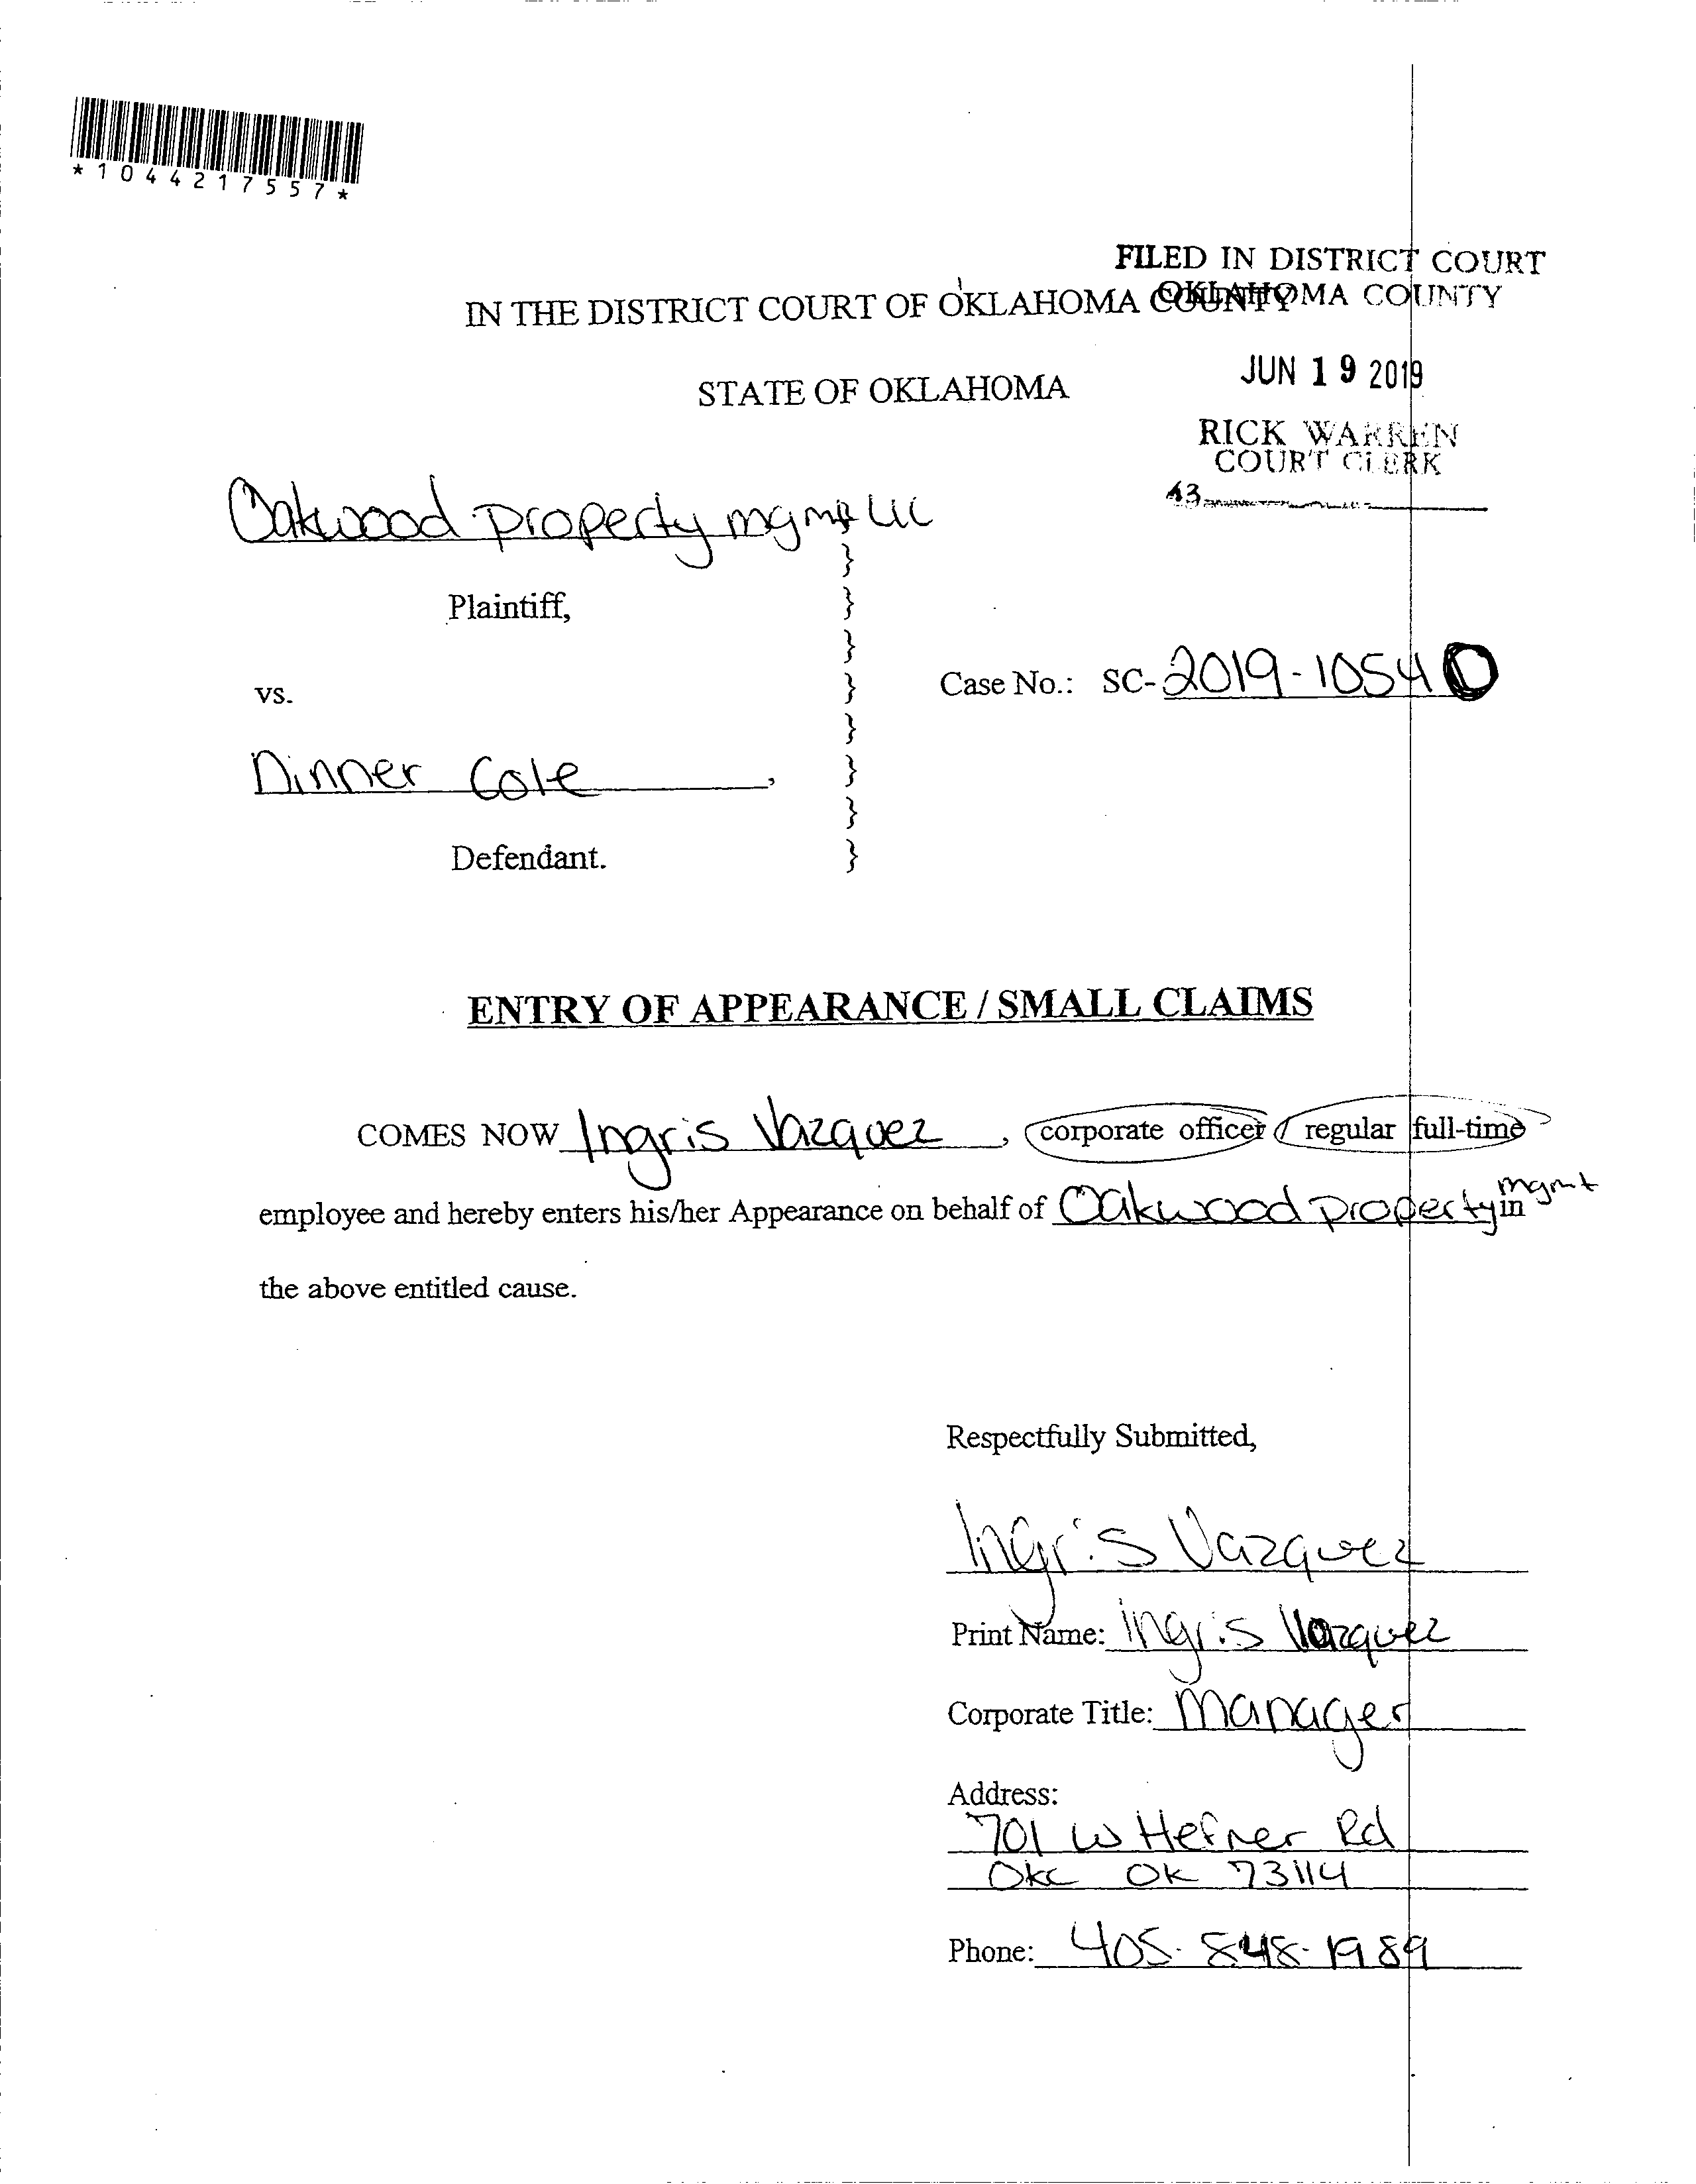 *1044217557*
FILED IN DISTRICT COURT
OKLAHOMA COUNTY
IN THE DISTRICT COURT OF OKLAHOMA COUNTY
JUN 19 2019
STATE OF OKLAHOMA
RICK WARREN
COURT CLERK
43
Oakwood property mgmt LLC
}
Plaintiff, }
}
vs. } Case No.: SC-2019-10540
}
Dinner Cole , }
}
Defendant. }
ENTRY OF APPEARANCE / SMALL CLAIMS
COMES NOW Ingris Vazquez , corporate officer / regular full-time
employee and hereby enters his/her Appearance on behalf of Oakwood property mgmt in
the above entitled cause.
Respectfully Submitted,
Ingris Vazquez
Print Name: Ingris Vazquez
Corporate Title: Manager
Address:
701 W Hefner Rd
OKC OK 73114
Phone: 405-848-1989